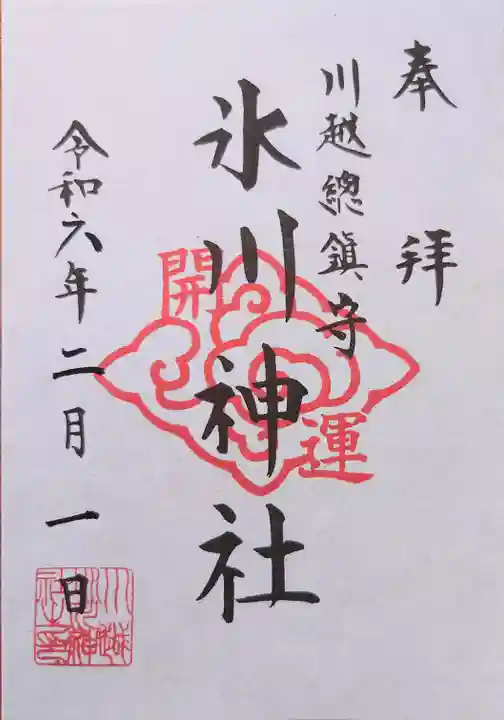 奉拝
川越總鎮守
氷川神社
開運
令和六年二月一日